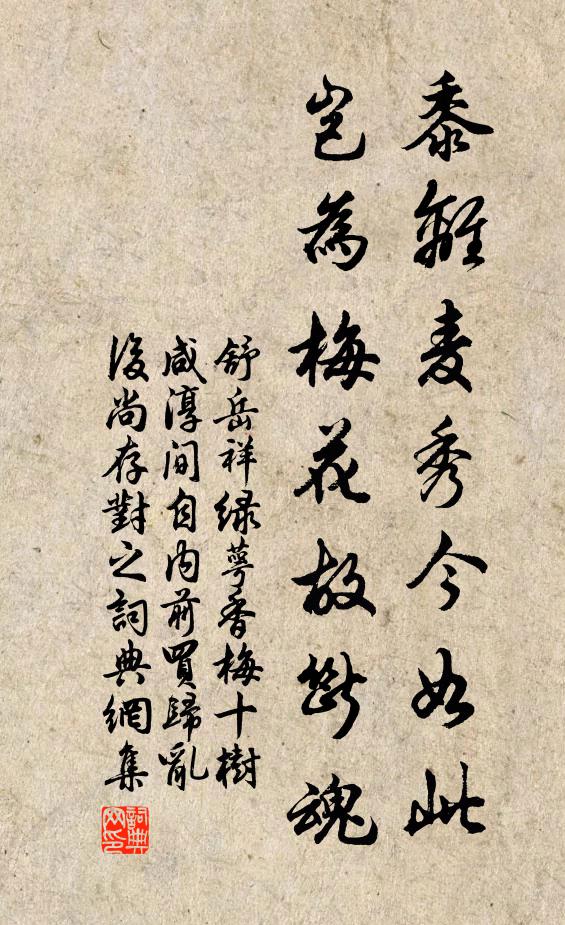 黍離麦秀今如此
豈為梅花故斷魂
舒岳祥绿萼香梅十樹
咸淳间自内前買歸亂
後尚存對之詞典網集
詞典
网印